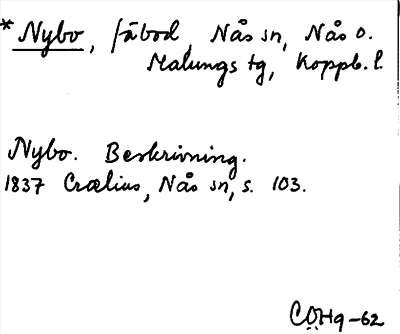 * Nybo, fäbod, Nås sn, Nås o.
Malungs tg, Koppb. l.
Nybo. Beskrivning.
1837 Crælius, Nås sn, s. 103.
COHq-62